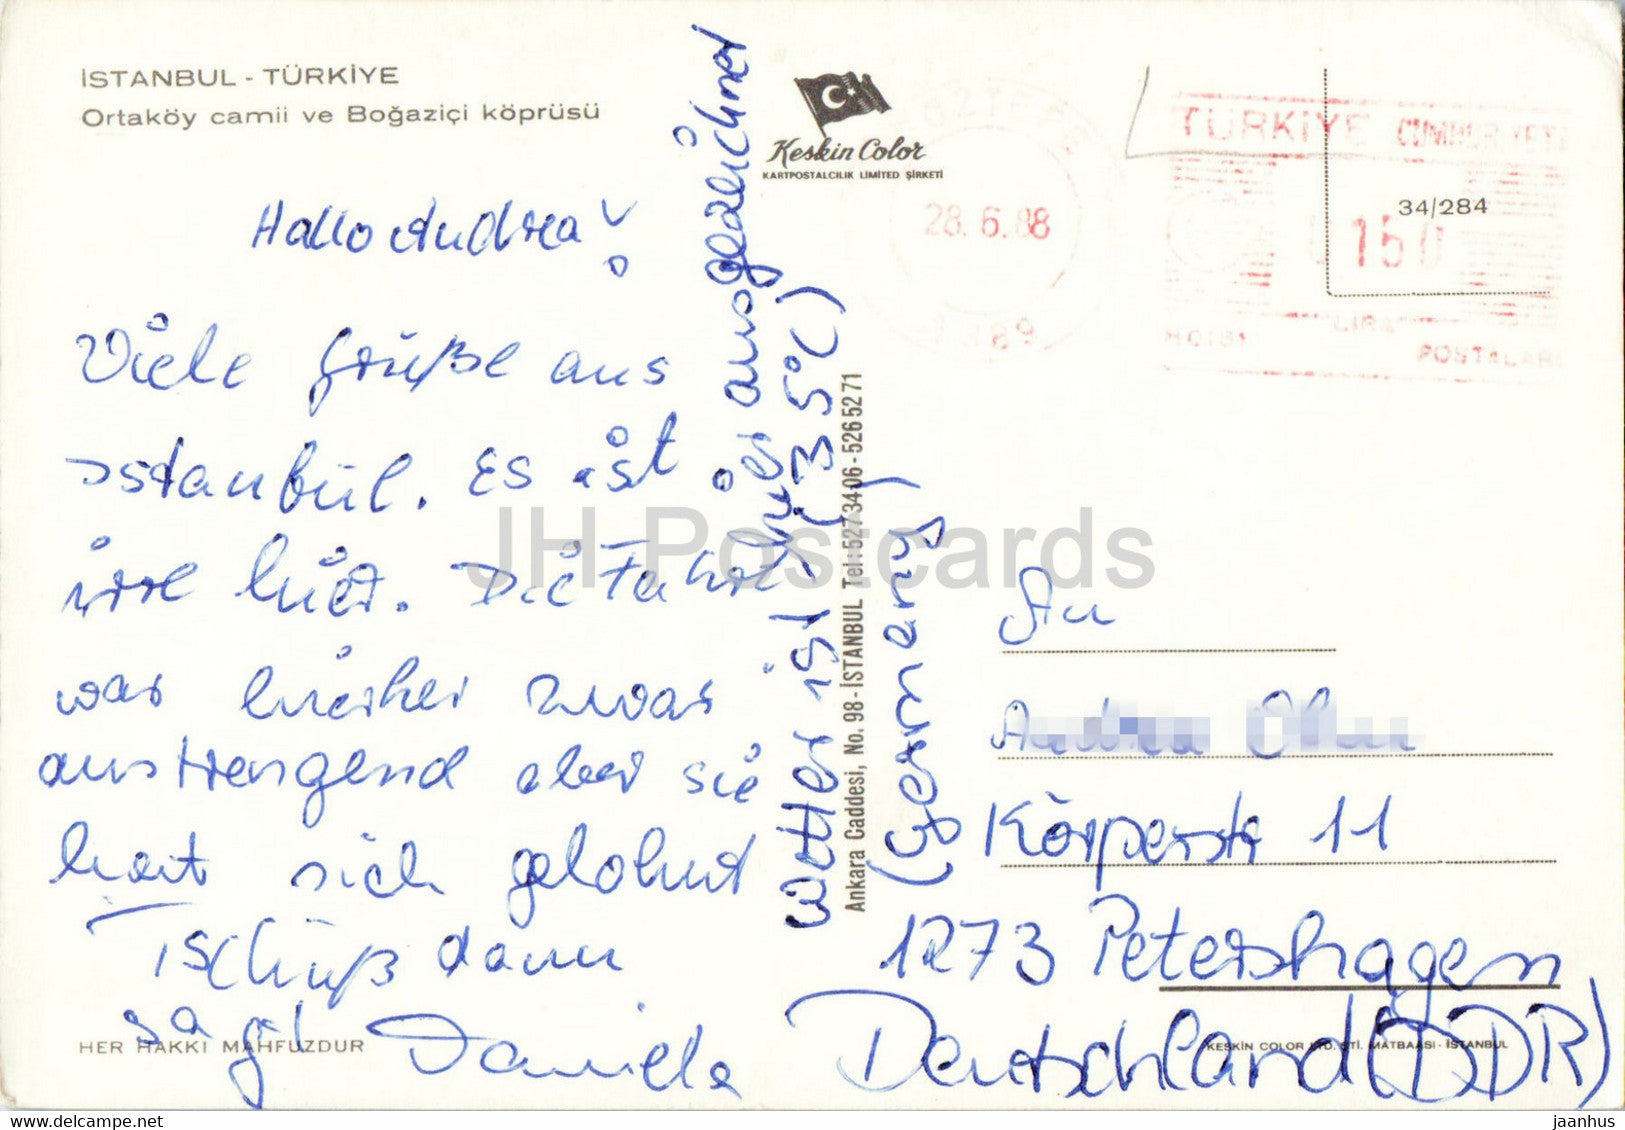 İSTANBUL - TÜRKİYE
Ortaköy camii ve Boğaziçi köprüsü
Hallo Andrea!
Viele Grüße aus
Istanbul. Es ist
irre hier. Die Fahrt
war hierher zwar
anstrengend aber sie
hat sich gelohnt
Tschüß dann
sagt Daniela
Wetter ist hier ausgezeichnet
(35°C)
HER HAKKI MAHFUZDUR
Keskin Color
KARTPOSTALCILIK LIMITED ŞİRKETİ
Ankara Caddesi, No. 98 - İSTANBUL Tel: 527 34 06 - 526 52 71
28.6.88
TÜRKİYE CUMHURİYETİ
34/284
150
LIRA
POSTALARI
An
Andrea
Körperstr 11
1273 Petershagen
Deutschland (DDR)
(Germany)
KESKİN COLOR LTD. ŞTİ. MATBAASI - İSTANBUL
JH Postcards
www.delcampe.net
jaanhus